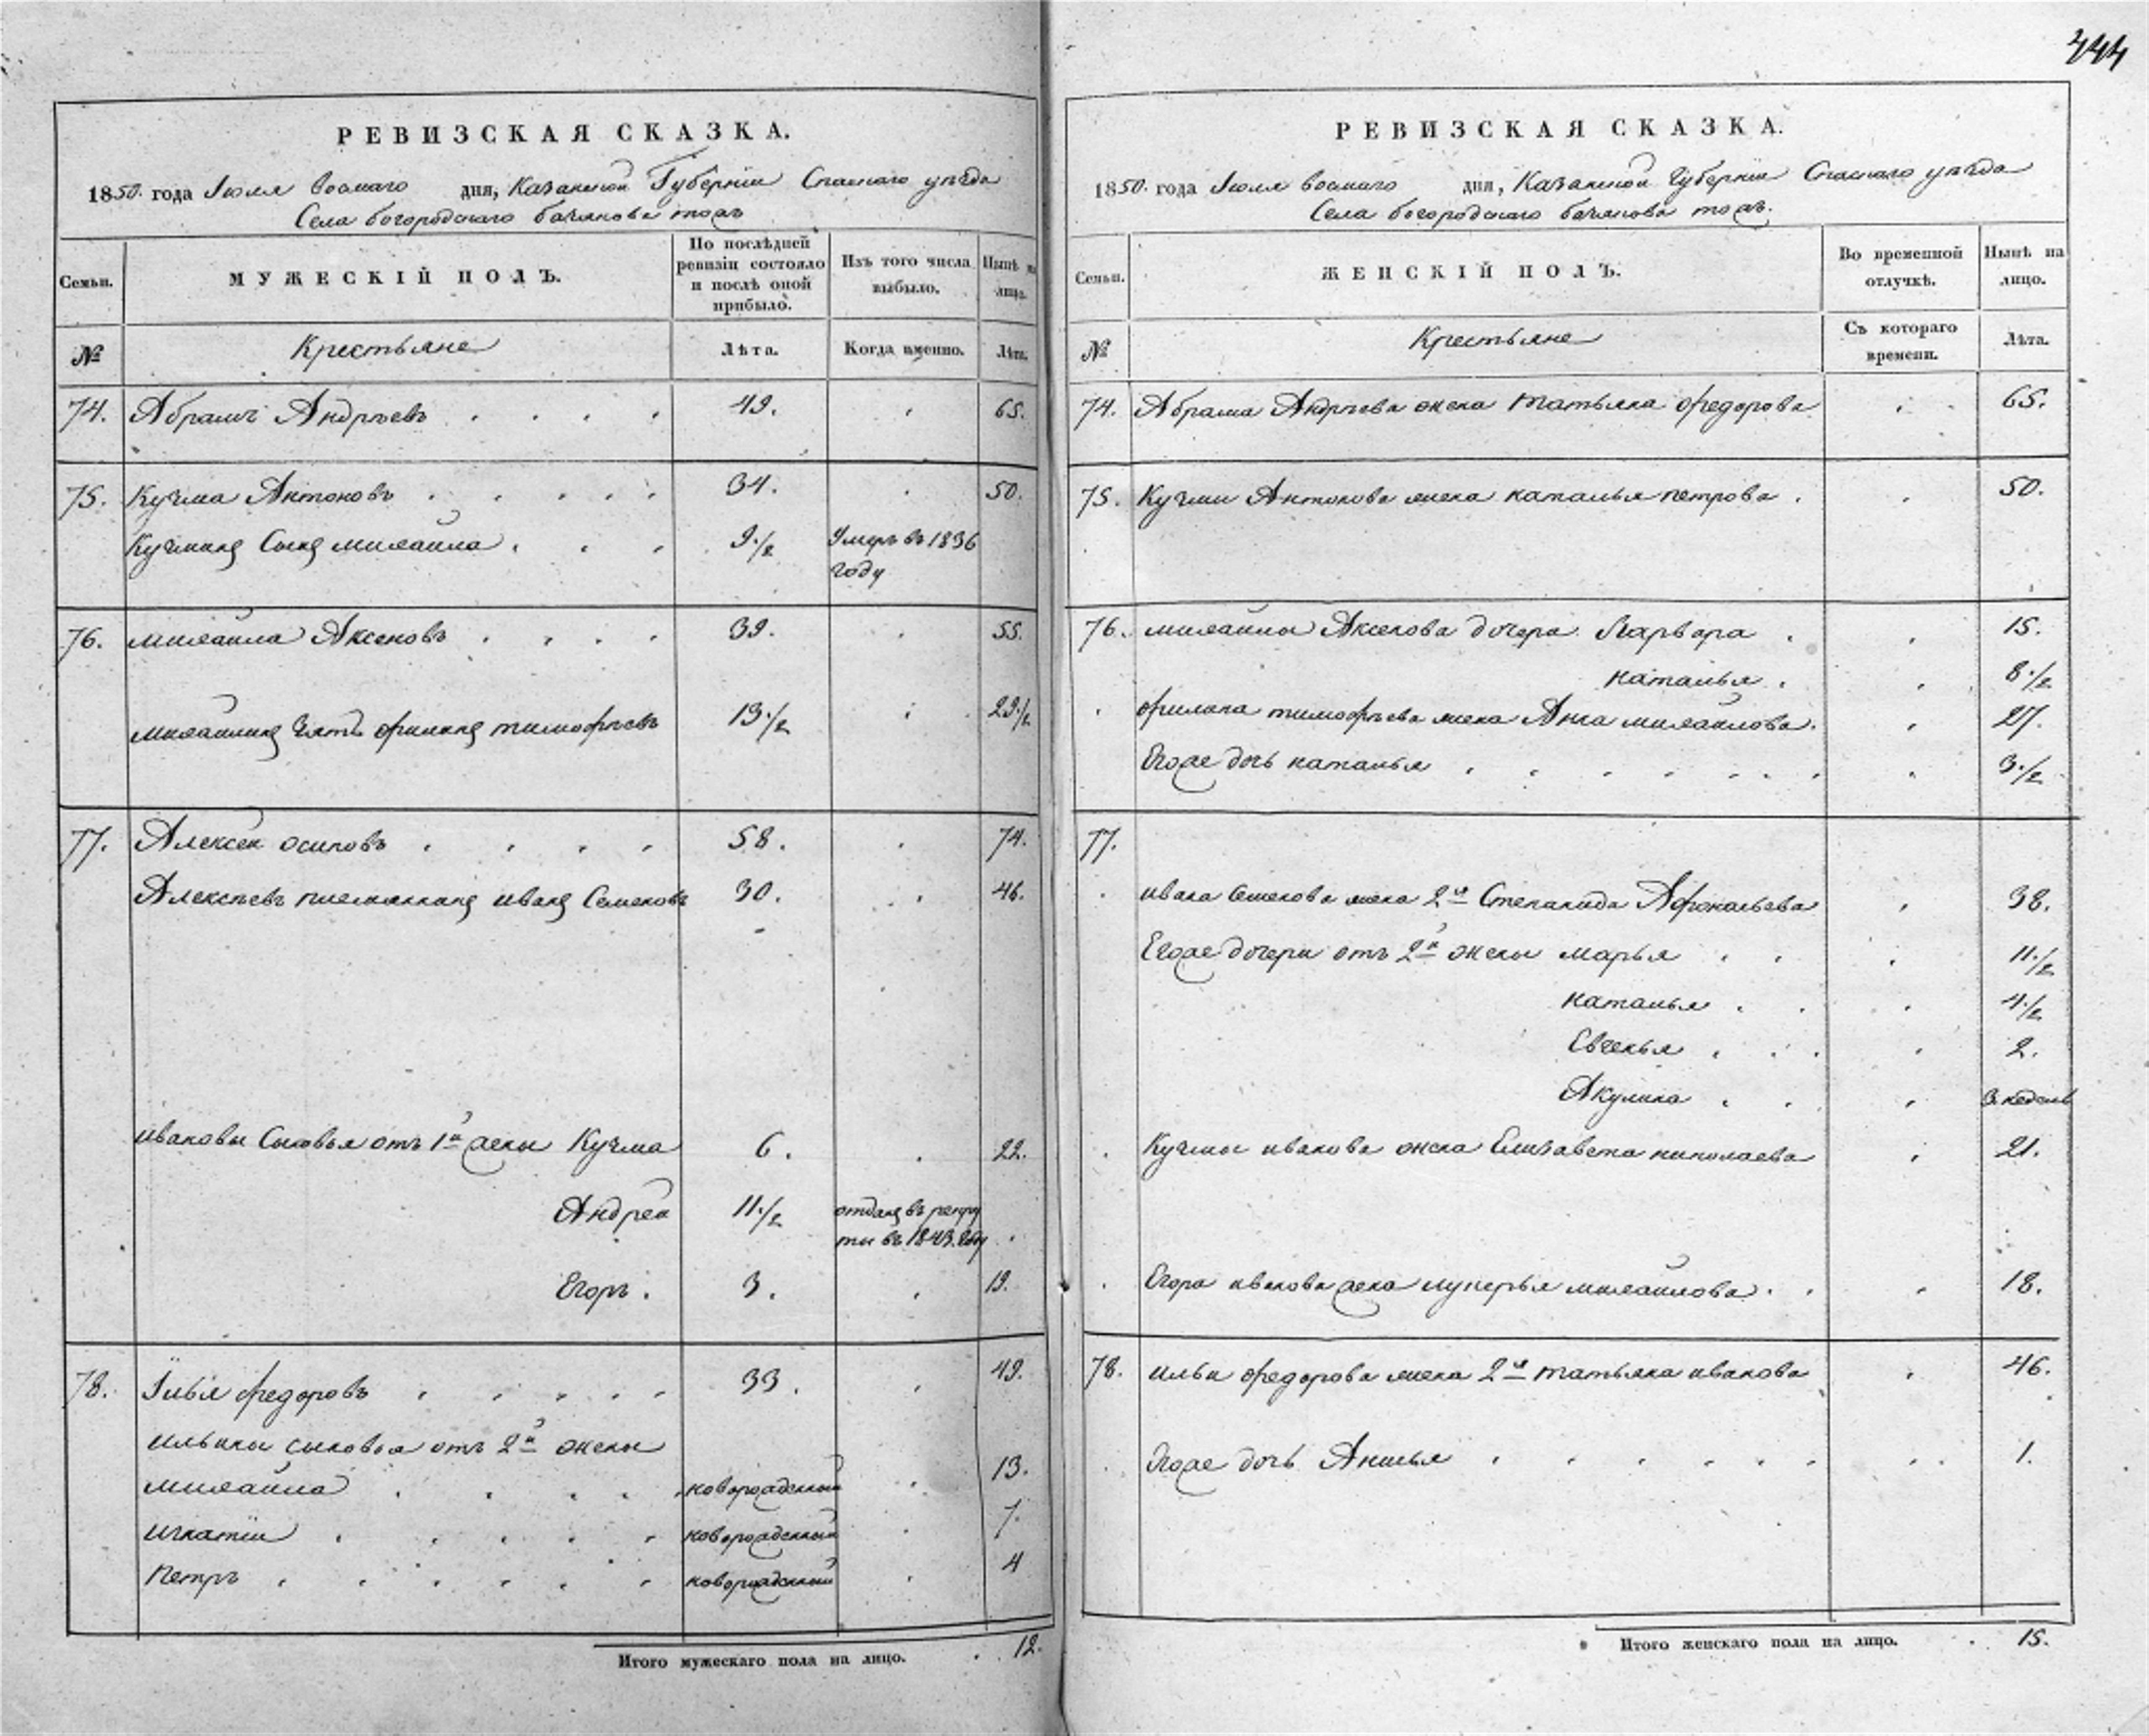 444
РЕВИЗСКАЯ СКАЗКА.
1850. года Іюля восмаго дня, Казанской Губерніи Спаскаго уѣзда
Села богородскаго
МУЖЕСКІЙ ПОЛЪ.
Семьи.
По послѣдней ревизіи состояло и послѣ оной прибыло.
Изъ того числа выбыло.
Нынѣ на лицо.
№
Крестьяне
Лѣта.
Когда именно.
Лѣта.
74. Абрамъ Андрѣевъ . . . . 49. . 65.
75. Кузма Антоновъ . . . . . 34. . 50.
Кузминъ Сынъ михаила . . . 9½ Умеръ въ 1836
году
76. михаила Аксеновъ . . . . 39. . 55.
михаилинъ зять филипъ тимофѣевъ 13½ . 29½
77. Алексей осиповъ . . . . 58. . 74.
Алексѣевъ племянникъ иванъ Семеновъ 30. . 46.
ивановы Сыновья отъ 1й жены Кузма 6. . 22.
Андрей 11½ отданъ въ рекру
ты въ 1843. году .
Егоръ . 3. . 19.
78. Илья федоровъ . . . . . 33. . 49.
ильины сыновья отъ 2й жены
михаила . . . . новорожденный . 13.
игнатіи . . . . . новорожденный . 7.
Петръ . . . . . . новорожденный . 4
Итого мужескаго пола на лицо. . . 12.
РЕВИЗСКАЯ СКАЗКА.
1850. года Іюля восмаго дня, Казанской Губерніи Спаскаго уѣзда
Села богородскаго
Семьи.
ЖЕНСКІЙ ПОЛЪ.
Во временной отлучкѣ.
Нынѣ на лицо.
№
Крестьяне
Съ котораго времени.
Лѣта.
74. Абрама Андрѣева жена татьяна федорова . 65.
75. Кузмы Антонова жена наталья петрова . . 50.
76. михаилы Аксенова дочери Варвара . . 15.
наталья . . 8½
филипа тимофѣева жена Анна михаилова. . 27.
Егоже дочь наталья . . . . . . . . 3½
77.
ивана Семенова жена 2я Степанида Афонасьева . 38.
Егоже дочери отъ 2й жены марья . . . 11½
наталья . . . 4½
Евгенья . . . . 2.
Акулина . . . 3. недель
Кузмы иванова жена Елизавета николаева . 21.
Егора иванова жена лукерья михаилова . . . 18.
78. ильи федорова жена 2я татьяна иванова . 46.
Егоже дочь Анисья . . . . . . . . 1.
Итого женскаго пола на лицо. . 15.